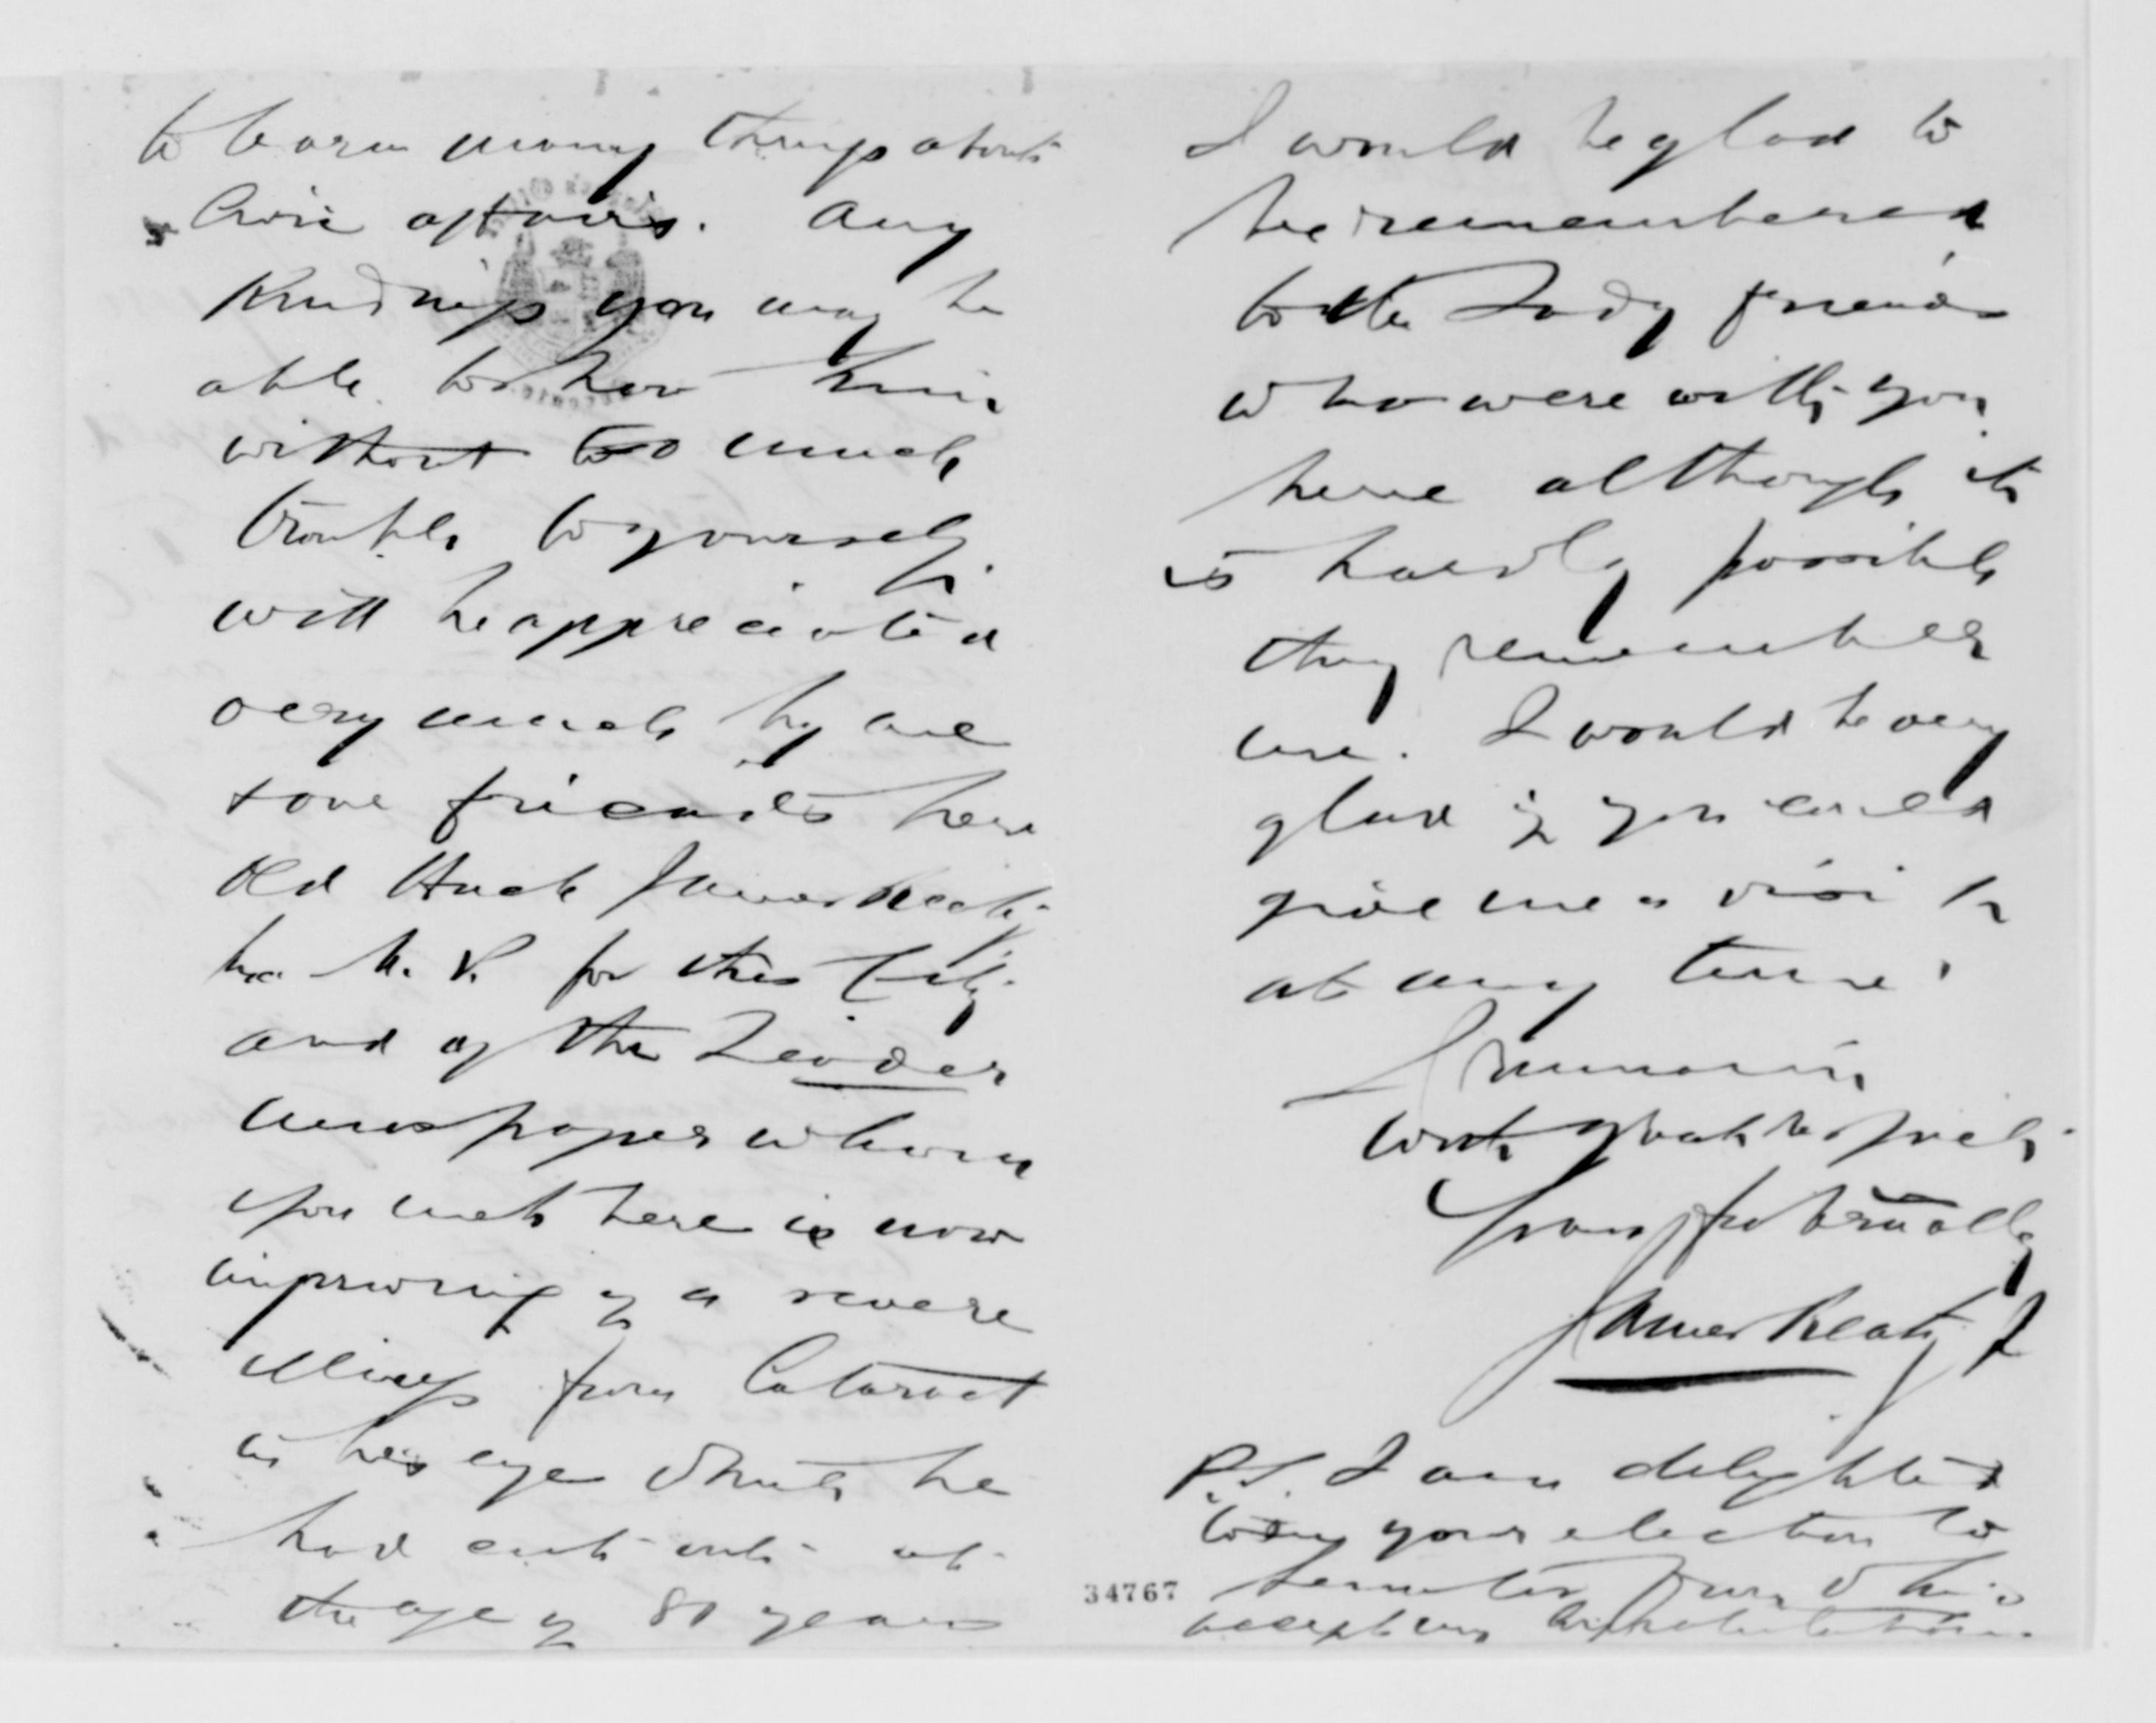 to learn many things about
Civic affairs. Any
Kindness you may be
able to show him
without too much
trouble to yourself
will be appreciated
very much by me
& our friends here
Old Uncle James Beaty
Ex M.P. for this City
and of the Leader
newspaper whom
you met here is now
improving of a severe
illness from Cataract
in his eye which he
had cut out at
the age of 80 years
I would be glad to
be remembered
to the Lady friends
who were with you
here although it
is hardly possible
they remember
me. I would be very
glad if you could
give me a visit
at any time.
I remain
with great respect
Yours fraternally
James Beaty Jr
P.S. I am delighted
to see your election to
Senator from Ohio
accept my congratulations
34767